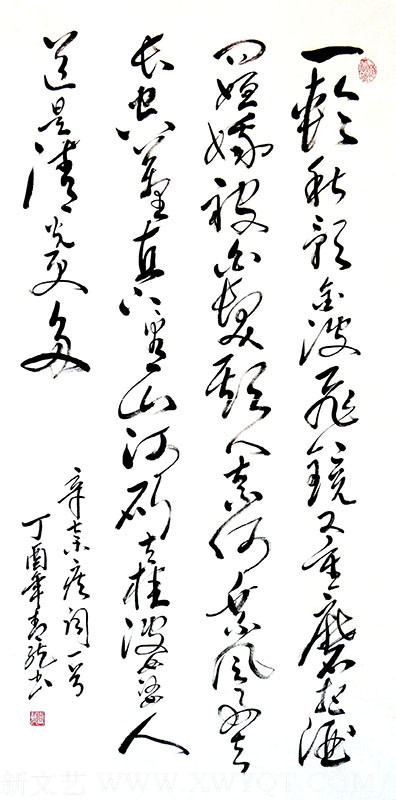 一轮秋影金波飞镜又重磨把酒
问姮娥被白发欺人奈何乘风好去
长空萬里直下看山河斫去桂婆娑人
道是清光更多
辛弃疾词一首
丁酉年
新文艺 WWW.XWYQT.COM/